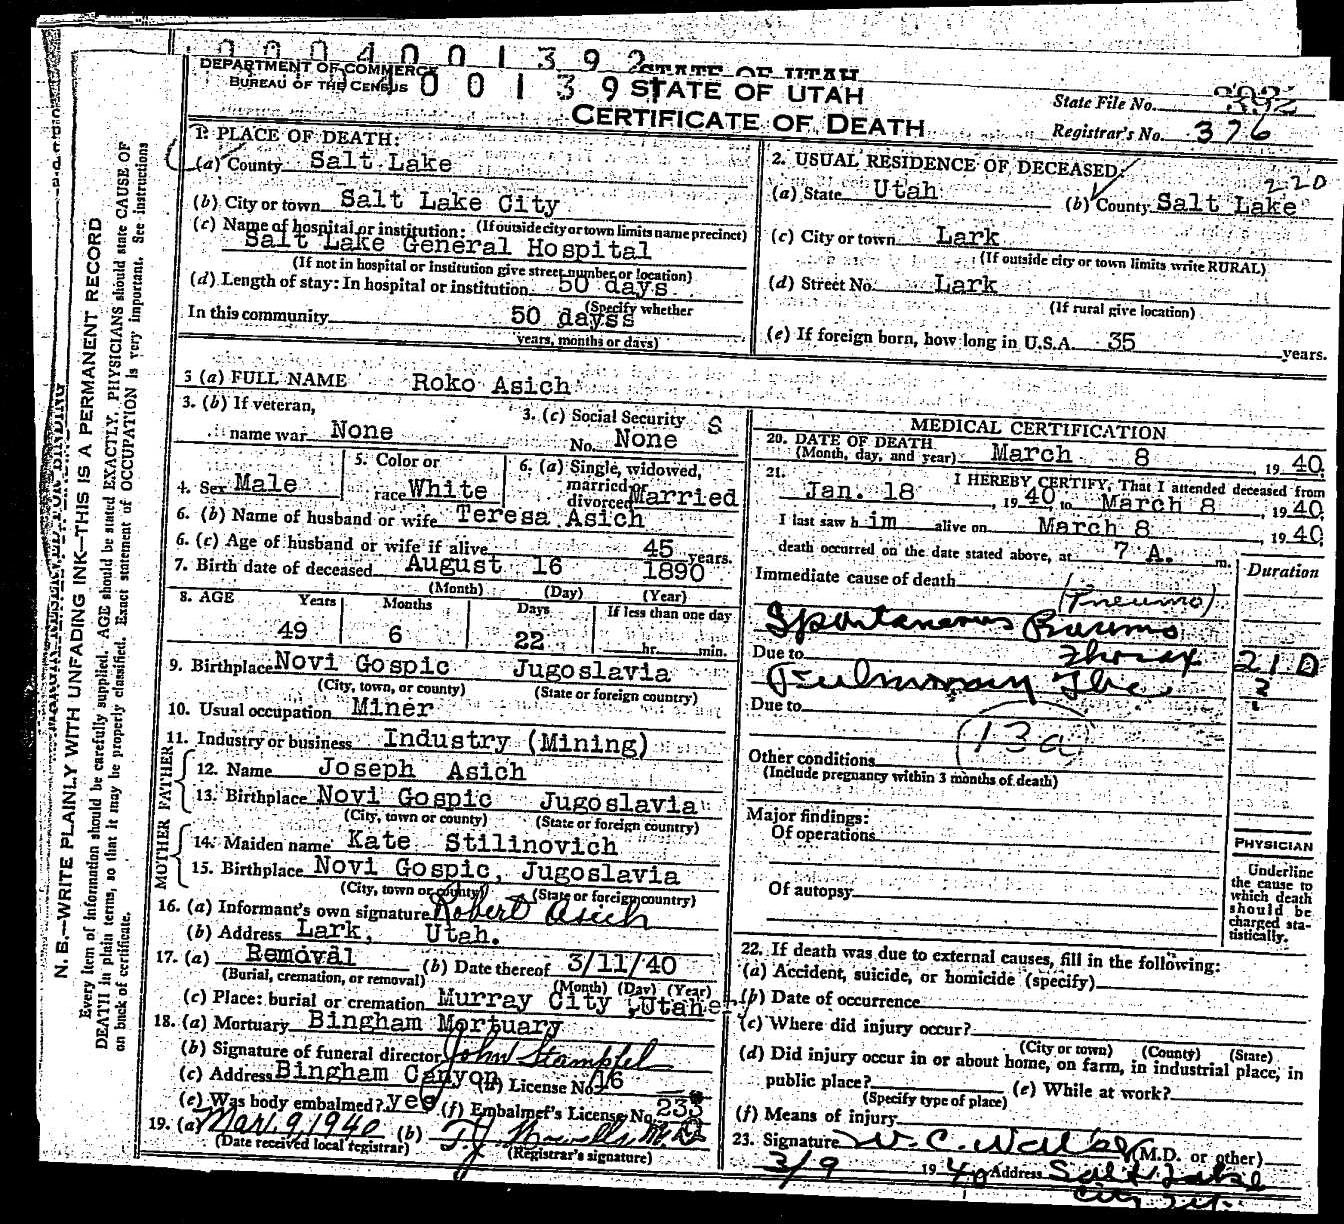 0004001392
DEPARTMENT OF COMMERCE
BUREAU OF THE CENSUS
STATE OF UTAH
STATE OF UTAH
CERTIFICATE OF DEATH
State File No. 392
Registrar's No. 376
1. PLACE OF DEATH:
(a) County Salt Lake
(b) City or town Salt Lake City
(If outside city or town limits name precinct)
(c) Name of hospital or institution:
Salt Lake General Hospital
(If not in hospital or institution give street number or location)
(d) Length of stay: In hospital or institution 50 days
(Specify whether
In this community 50 dayss
years, months or days)
2. USUAL RESIDENCE OF DECEASED:
220
(a) State Utah (b) County Salt Lake
(c) City or town Lark
(If outside city or town limits write RURAL)
(d) Street No. Lark
(If rural give location)
(e) If foreign born, how long in U.S.A. 35 years.
3 (a) FULL NAME Roko Asich
3. (b) If veteran,
name war None
3. (c) Social Security S
No. None
4. Sex Male
5. Color or
race White
6. (a) Single, widowed,
married or
divorced Married
6. (b) Name of husband or wife Teresa Asich
6. (c) Age of husband or wife if alive 45 years.
7. Birth date of deceased August 16 1890
(Month) (Day) (Year)
8. AGE Years Months Days If less than one day
49 6 22 hr. min.
9. Birthplace Novi Gospic Jugoslavia
(City, town, or county) (State or foreign country)
10. Usual occupation Miner
11. Industry or business Industry (Mining)
FATHER
12. Name Joseph Asich
13. Birthplace Novi Gospic Jugoslavia
(City, town or county) (State or foreign country)
MOTHER
14. Maiden name Kate Stilinovich
15. Birthplace Novi Gospic, Jugoslavia
(City, town or county) (State or foreign country)
16. (a) Informant's own signature Robert Asich
(b) Address Lark, Utah.
17. (a) Removal (b) Date thereof 3/11/40
(Burial, cremation, or removal) (Month) (Day) (Year)
(c) Place: burial or cremation Murray City, Utah
18. (a) Mortuary Bingham Mortuary
(b) Signature of funeral director John Stampfel
(c) Address Bingham Canyon (d) License No. 16
(e) Was body embalmed? yes (f) Embalmer's License No. 233
19. (a) Mar. 9, 1940 (b)
(Date received local registrar) (Registrar's signature)
MEDICAL CERTIFICATION
20. DATE OF DEATH
(Month, day, and year) March 8, 1940.
21. I HEREBY CERTIFY, That I attended deceased from
Jan. 18, 1940, to March 8, 1940.
I last saw him alive on March 8, 1940;
death occurred on the date stated above, at 7 A. m.
Duration
Immediate cause of death
(Pneumo)
Spontaneous
Due to Thorax 21 D
Pulmonary Tbc ?
Due to
13a
Other conditions
(Include pregnancy within 3 months of death)
Major findings:
Of operations
Of autopsy
PHYSICIAN
Underline
the cause to
which death
should be
charged sta-
tistically.
22. If death was due to external causes, fill in the following:
(a) Accident, suicide, or homicide (specify)
(b) Date of occurrence
(c) Where did injury occur?
(City or town) (County) (State)
(d) Did injury occur in or about home, on farm, in industrial place, in
public place? (e) While at work?
(Specify type of place)
(f) Means of injury
23. Signature W. C. Walker (M.D. or other)
3/9 1940 Address Salt Lake
City Ut.
N. B.—WRITE PLAINLY WITH UNFADING INK—THIS IS A PERMANENT RECORD
Every item of information should be carefully supplied. AGE should be stated EXACTLY. PHYSICIANS should state CAUSE OF
DEATH in plain terms, so that it may be properly classified. Exact statement of OCCUPATION is very important. See instructions
on back of certificate.